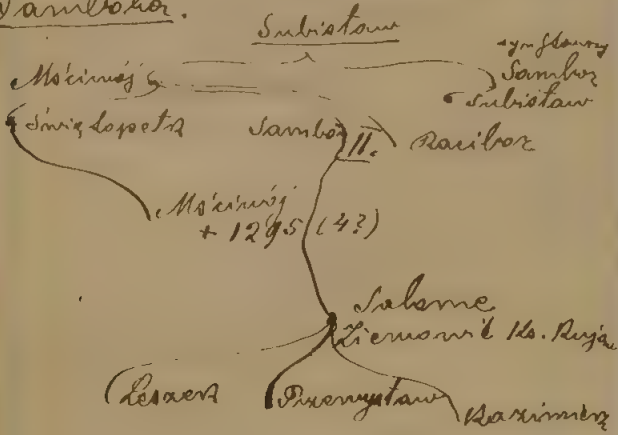 Sambora.
Subisław
syn Sławny
Mściwój Sambor
Subisław
Świętopełk Sambor II. Racibor
Mściwój
+ 1295 (4?)
Salome
Ziemowit Ks. Kuja
Leszek Przemysław
Kazimierz